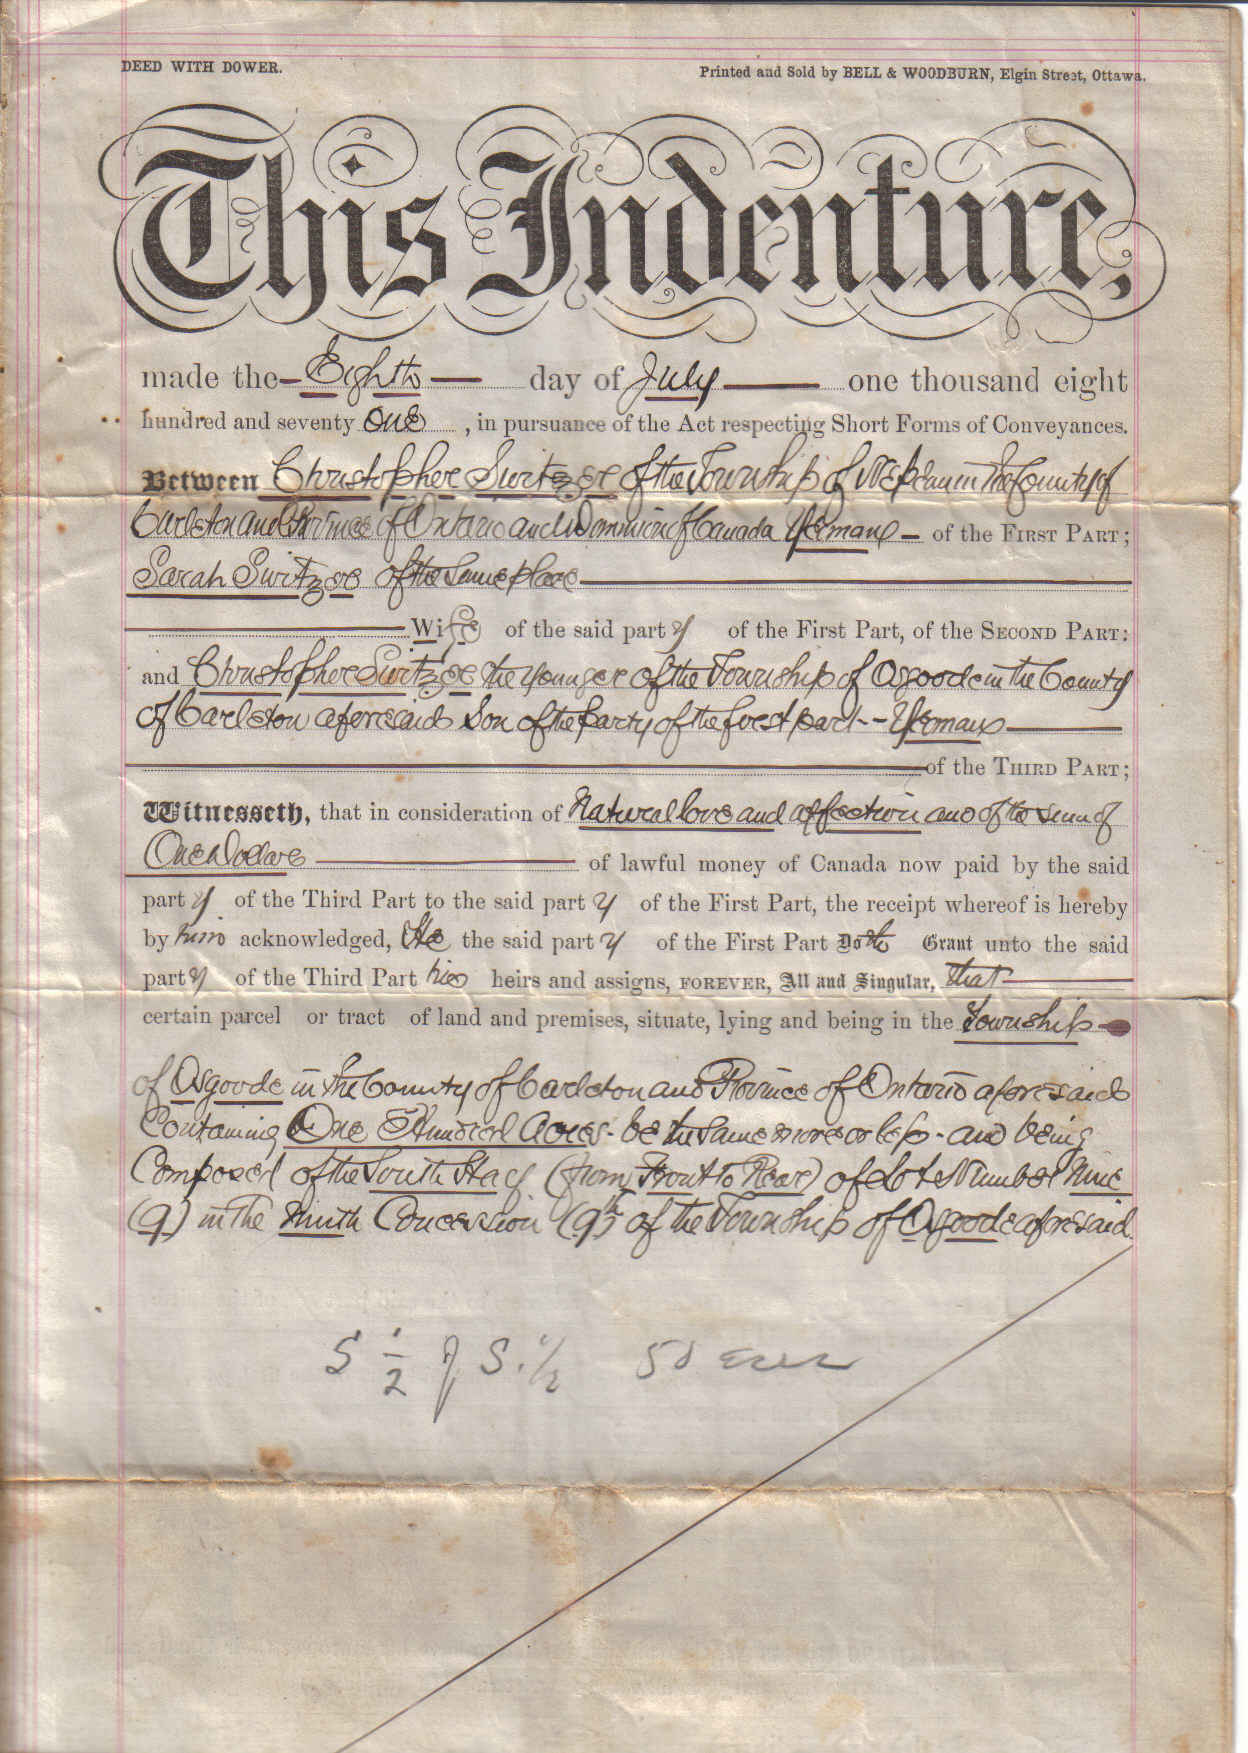 DEED WITH DOWER.
Printed and Sold by BELL & WOODBURN, Elgin Street, Ottawa.
This Indenture,
made the Eighth day of July one thousand eight
hundred and seventy one, in pursuance of the Act respecting Short Forms of Conveyances.
Between Christopher Switzer of the Township of Nepean in the County of
Carleton and Province of Ontario and Dominion of Canada Yeoman of the FIRST PART;
Sarah Switzer of the Same place
Wife of the said party of the First Part, of the SECOND PART:
and Christopher Switzer the Younger of the Township of Osgoode in the County
of Carleton aforesaid Son of the party of the first part - - Yeoman
of the THIRD PART;
Witnesseth, that in consideration of Natural love and affection and of the Sum of
One Dollars of lawful money of Canada now paid by the said
party of the Third Part to the said party of the First Part, the receipt whereof is hereby
by him acknowledged, He the said party of the First Part Doth Grant unto the said
party of the Third Part his heirs and assigns, FOREVER, All and Singular, that
certain parcel or tract of land and premises, situate, lying and being in the Township
of Osgoode in the County of Carleton and Province of Ontario aforesaid
Containing One Hundred Acres - be the same more or less - and being
Composed of the South Half (from Front to Rear) of Lot Number Nine
(9) in the Ninth Concession (9th) of the Township of Osgoode aforesaid.
S 1/2 of S. 1/2 50 acres